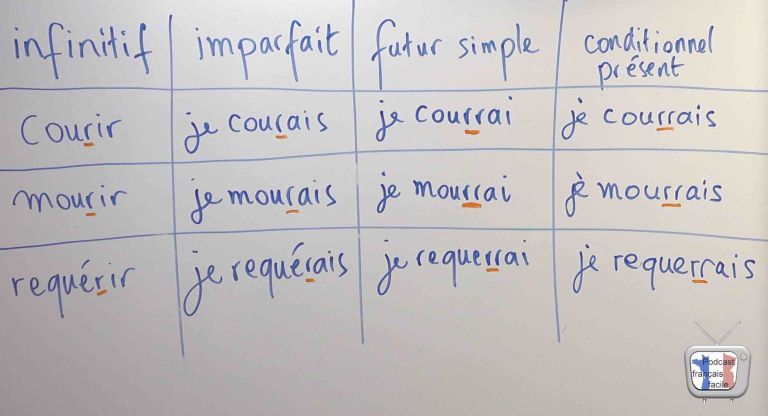 infinitif imparfait futur simple conditionnel
présent
courir je courais je courrai je courrais
mourir je mourais je mourrai je mourrais
requérir je requérais je requerrai je requerrais
Podcast
français
facile